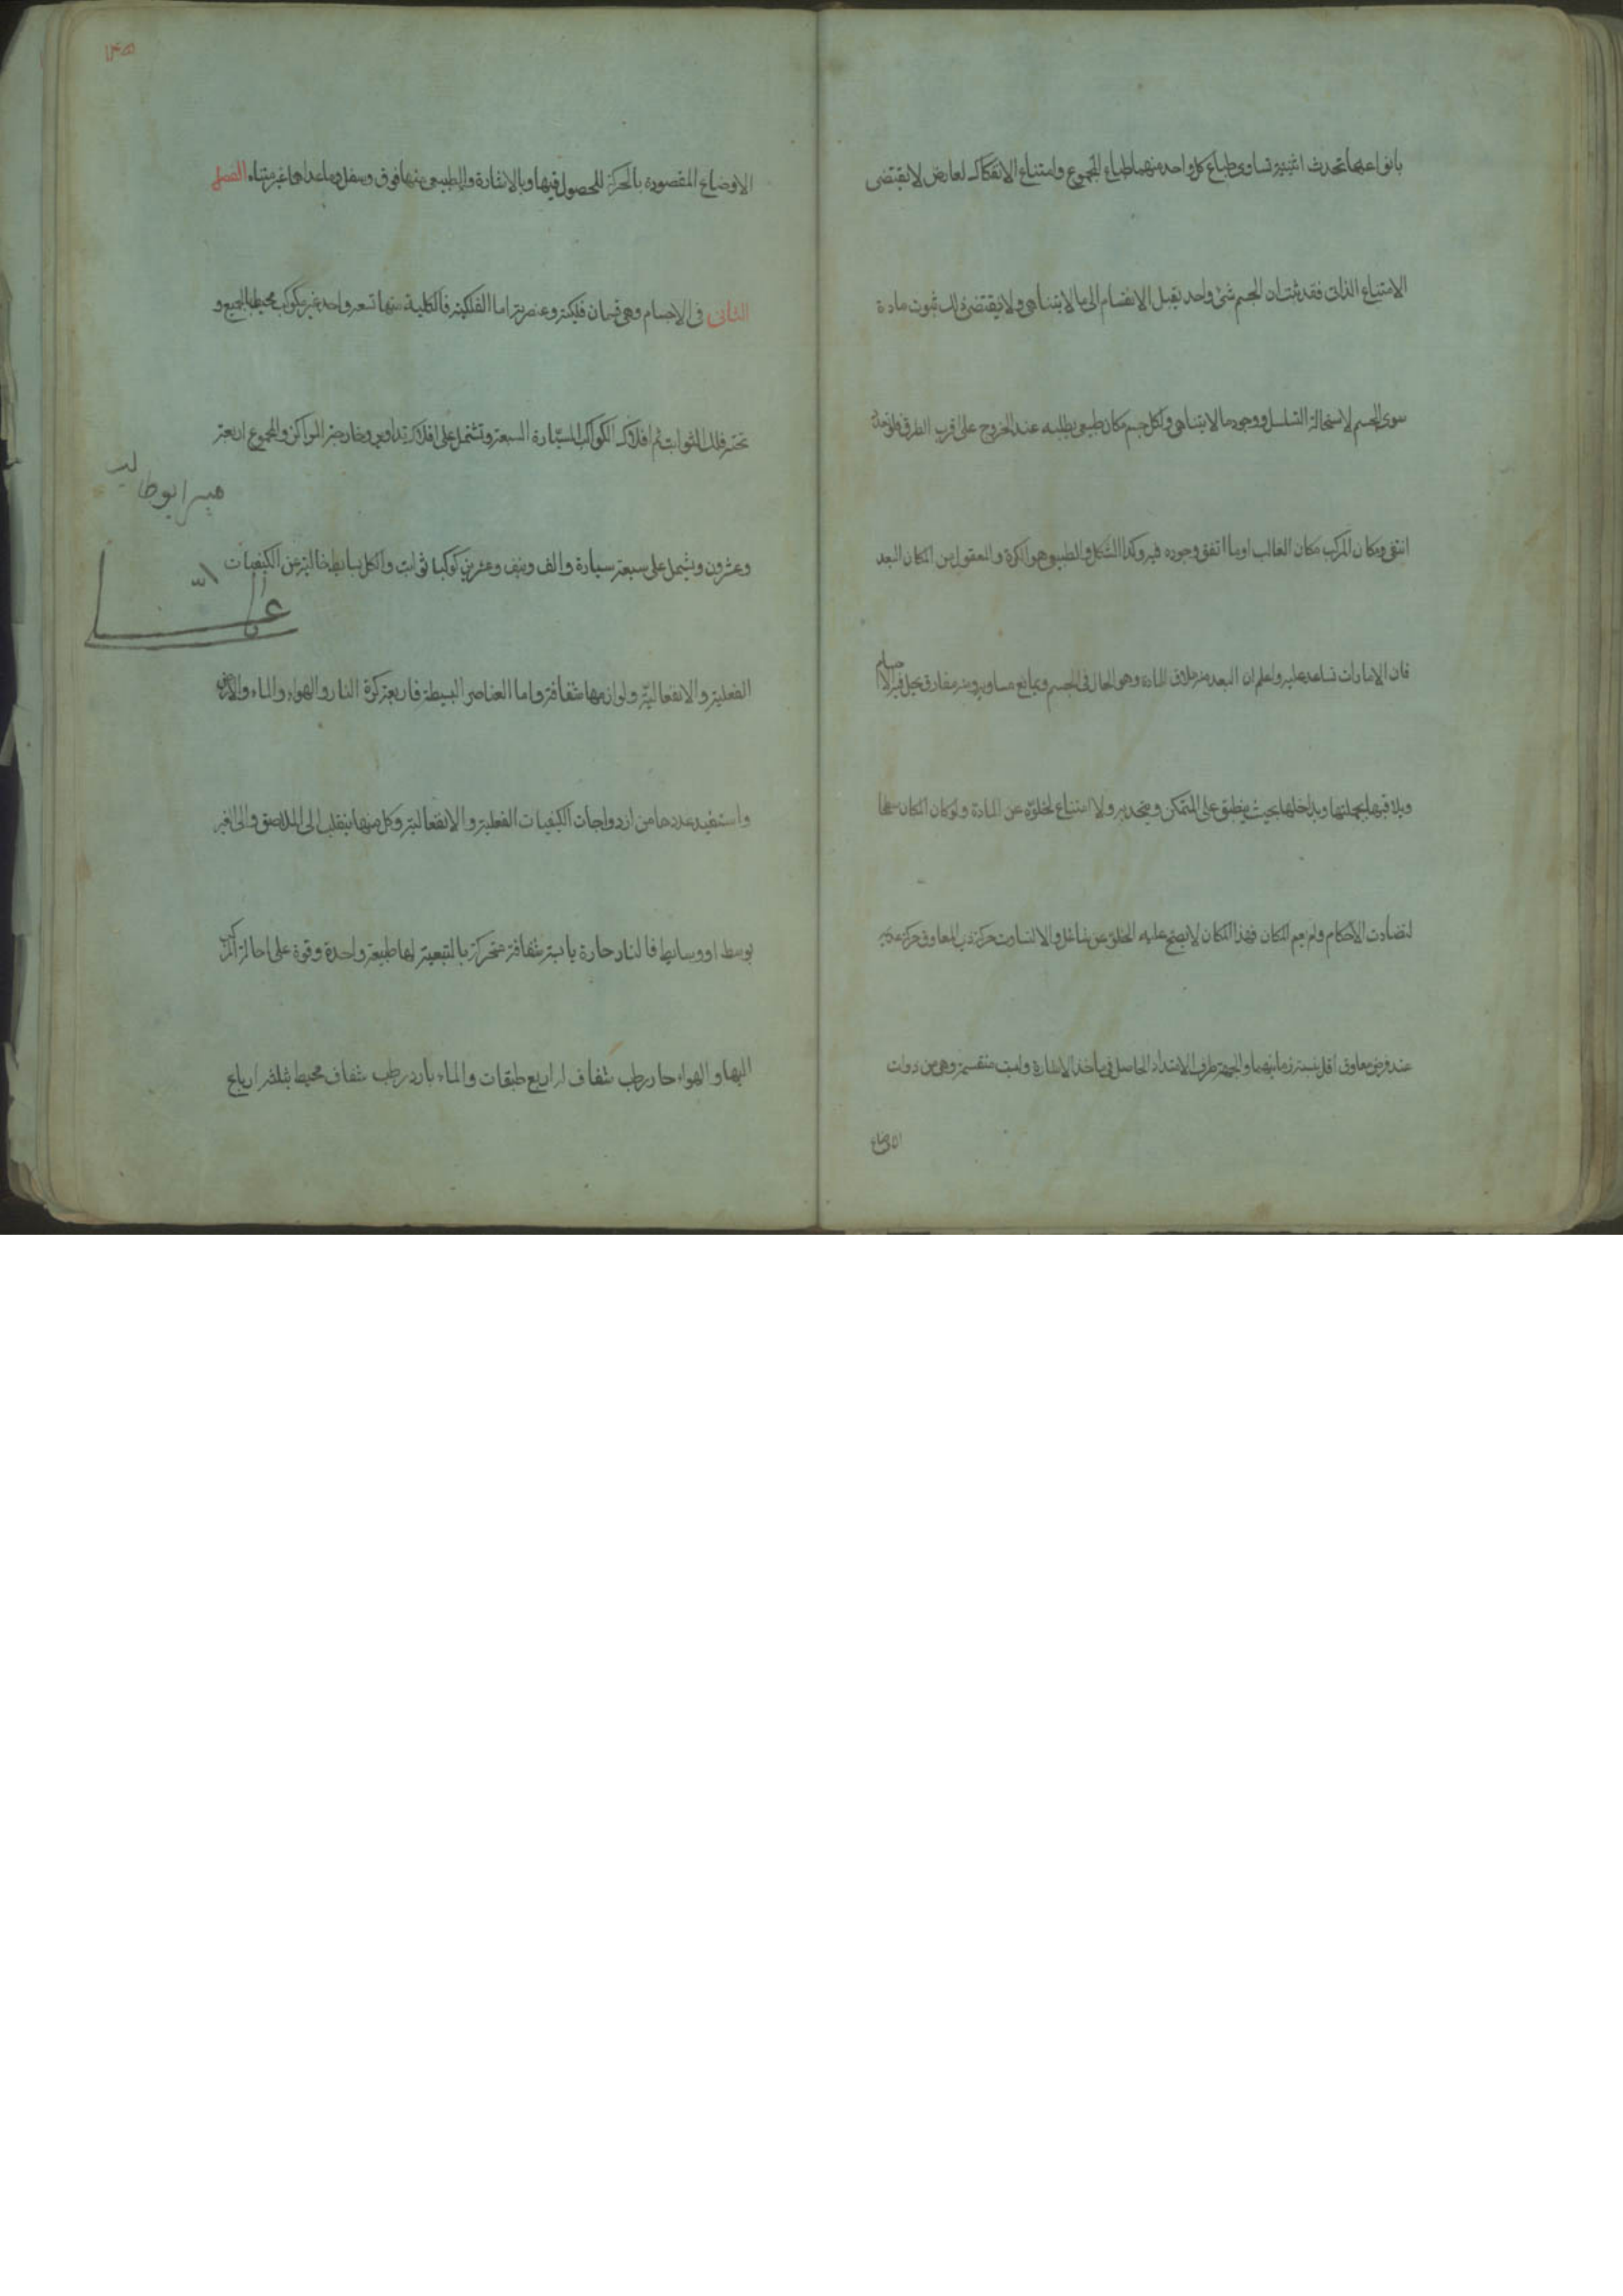 بانواعها تحدث اثنينية تساوي طباع كل واحد منهما طباع المجموع وامتناع الانفكاك لعارض لا يقتضي
الامتناع الذاتي فقد ثبت ان الجسم شئ واحد يقبل الانقسام الى ما لا يتناهى ولا يقتضي ذلك ثبوت مادة
سوى الجسم لاستحالة التسلسل ووجود ما لا يتناهى ولكل جسم مكان طبيعي يطلبه عند الخروج على اقرب الطرق فلو تعدد
انتفى ومكان المركب مكان الغالب او ما اتفق وجوده فيه وكذا الشكل والطبيعي هو الكرة والمعقول من المكان البعد
فان الامارات تساعد عليه واعلم ان البعد منه ملاق للمادة وهو الحال في الجسم ويمانع مساويه ومنه مفارق تحل فيه الاجسام
ويلاقيها بجملتها ويداخلها بحيث ينطبق على المتمكن ويتحد به ولا امتناع لخلوه عن المادة ولو كان المكان سطحا
لتضادت الاحكام ولم يعم المكان فهذا المكان لا يصح عليه الخلو عن شاغل والا لتساوت حركة ذي المعاوق حركة عديمه
عند فرض معاوق اقل بنسبة زمانيهما والجهة طرف الامتداد الحاصل في مأخذ الاشارة وليست منقسمة وهي من ذوات
الاوضاع
١٤٥
الاوضاع المقصودة بالحركة للحصول فيها وبالاشارة والطبيعي منها فوق وسفل وما عداهما غير متناه الفصل
الثاني في الاجسام وهي قسمان فلكية وعنصرية اما الفلكية فالكلية منها تسعة واحد غير مكوكب محيط بالجميع و
تحته فلك الثوابت ثم افلاك الكواكب السيارة السبعة وتشتمل على افلاك تداوير وخارجة المراكز والمجموع اربعة
وعشرون ويشمل على سبعة سيارة والف ونيف وعشرين كوكبا ثوابت والكل بسايط خالية عن الكيفيات
ميرابوطالب
الفعلية والانفعالية ولوازمها شفافة واما العناصر البسيطة فاربعة كرة النار والهواء والماء والارض
واستفيد عددها من ازدواجات الكيفيات الفعلية والانفعالية وكل منها ينقلب الى الملاصق والى الغير
بوسط او وسايط فالنار حارة يابسة شفافة متحركة بالتبعية لها طبيعة واحدة وقوة على احالة المركب
اليها والهواء حار رطب شفاف له اربع طبقات والماء بارد رطب شفاف محيط بثلثة ارباع